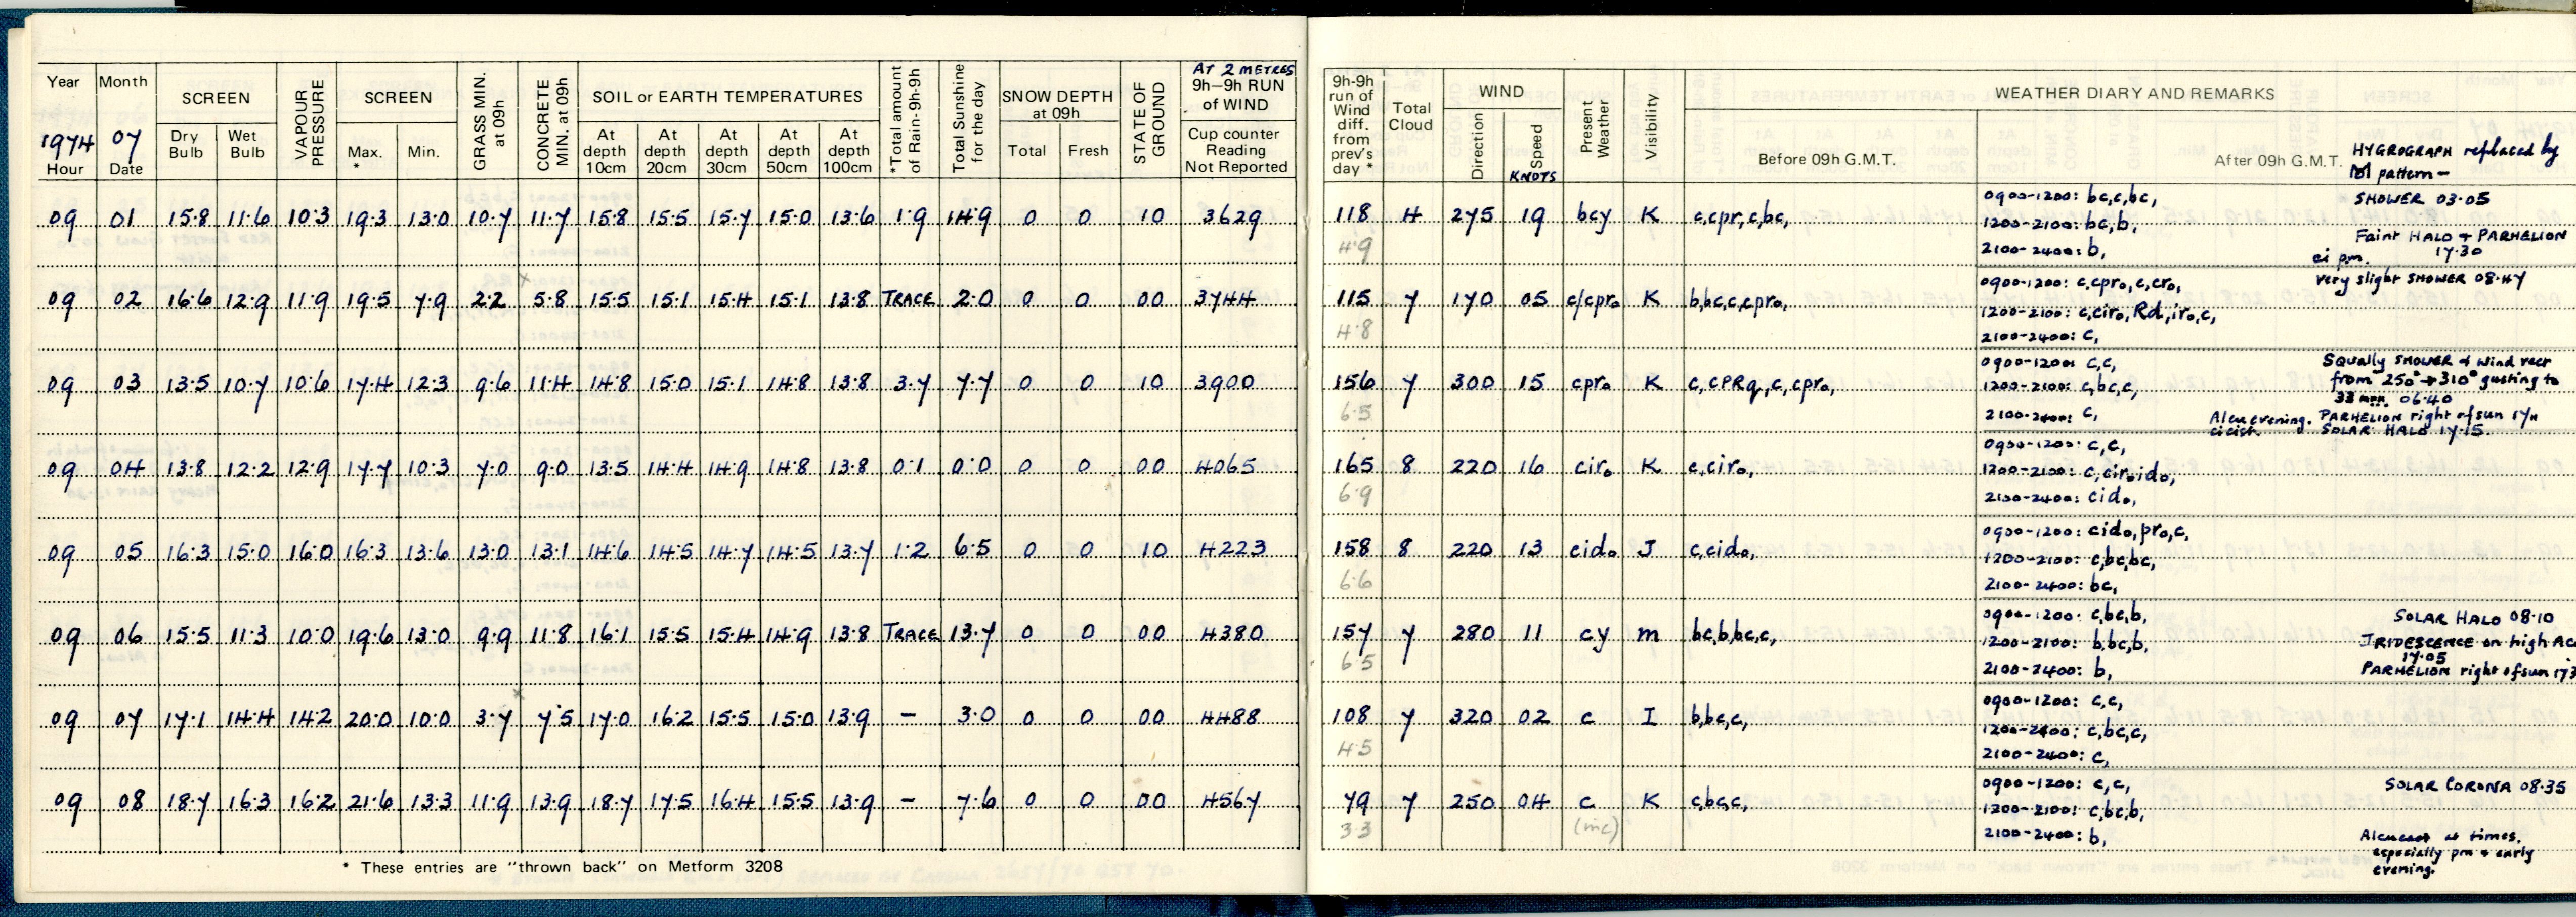 Year Month SCREEN VAPOUR PRESSURE SCREEN GRASS MIN. at 09h CONCRETE MIN. at 09h SOIL or EARTH TEMPERATURES *Total amount of Rain-9h-9h Total Sunshine for the day SNOW DEPTH at 09h STATE OF GROUND AT 2 METRES 9h-9h RUN of WIND
1974 07 Dry Bulb Wet Bulb Max. * Min. At depth 10cm At depth 20cm At depth 30cm At depth 50cm At depth 100cm Total Fresh Cup counter Reading Not Reported
Hour Date
09 01 15.8 11.6 10.3 19.3 13.0 10.7 11.7 15.8 15.5 15.7 15.0 13.6 1.9 14.9 0 0 10 3629
09 02 16.6 12.9 11.9 19.5 7.9 2.2 5.8 15.5 15.1 15.4 15.1 13.8 TRACE 2.0 0 0 00 3744
09 03 13.5 10.7 10.6 17.4 12.3 9.6 11.4 14.8 15.0 15.1 14.8 13.8 3.7 7.7 0 0 10 3900
09 04 13.8 12.2 12.9 17.7 10.3 7.0 9.0 13.5 14.4 14.9 14.8 13.8 0.1 0.0 0 0 00 4065
09 05 16.3 15.0 16.0 16.3 13.6 13.0 13.1 14.6 14.5 14.7 14.5 13.7 1.2 6.5 0 0 10 4223
09 06 15.5 11.3 10.0 19.6 13.0 9.9 11.8 16.1 15.5 15.4 14.9 13.8 TRACE 13.7 0 0 00 4380
09 07 17.1 14.4 14.2 20.0 10.0 3.7 7.5 17.0 16.2 15.5 15.0 13.9 – 3.0 0 0 00 4488
09 08 18.7 16.3 16.2 21.6 13.3 11.9 13.9 18.7 17.5 16.4 15.5 13.9 – 7.6 0 0 00 4567
* These entries are "thrown back" on Metform 3208
9h-9h run of Wind diff. from prev's day * Total Cloud WIND Present Weather Visibility WEATHER DIARY AND REMARKS
Direction Speed KNOTS Before 09h G.M.T. After 09h G.M.T. HYGROGRAPH replaced by
pattern –
118 4 275 19 bcy K c,cpr,c,bc, 0900-1200: bc,c,bc, SHOWER 03.05
4.9 1200-2100: bc,b, Faint HALO + PARHELION
2100-2400: b, 17.30
ci pm.
115 7 170 05 c/cpro K b,bc,c,cpro, 0900-1200: c,cpro,c,cro, very slight SHOWER 08.47
4.8 1200-2100: c,ciro,Rd,iro,c,
2100-2400: c,
156 7 300 15 cpro K c,cPRq,c,cpro, 0900-1200: c,c, Squally SHOWER & wind veer
6.5 1200-2100: c,bc,c, from 250°→310° gusting to
33 06.40
2100-2400: c, Alcu evening. PARHELION right of sun 17
cicist. SOLAR HALO 17.15.
165 8 220 16 ciro K c,ciro, 0900-1200: c,c,
6.9 1200-2100: c,ciro,ido,
2100-2400: cido,
158 8 220 13 cido J c,cido, 0900-1200: cido,pro,c,
6.6 1200-2100: c,bc,bc,
2100-2400: bc,
157 7 280 11 cy m bc,b,bc,c, 0900-1200: c,bc,b, SOLAR HALO 08.10
6.5 1200-2100: b,bc,b, IRIDESCENCE on high Ac
17.05
2100-2400: b, PARHELION right of sun 173
108 7 320 02 c I b,bc,c, 0900-1200: c,c,
4.5 1200-2400: c,bc,c,
2100-2400: c,
79 7 250 04 c K c,bc,c, 0900-1200: c,c, SOLAR CORONA 08.35
3.3 (mc) 1200-2100: c,bc,b,
2100-2400: b, Alcucast at times.
especially pm & early
evening.